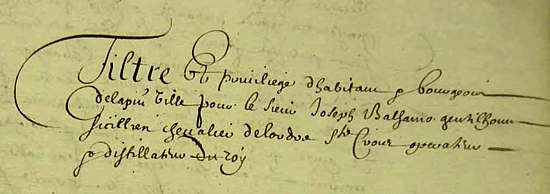 Tiltre Et priuiliege d'habitant & bourgeois
delapnt Ville pour le sieur Joseph Balsamo gentilhome
Sicillien chevalier delordre Ste Croix operateur
& distillateur du roy